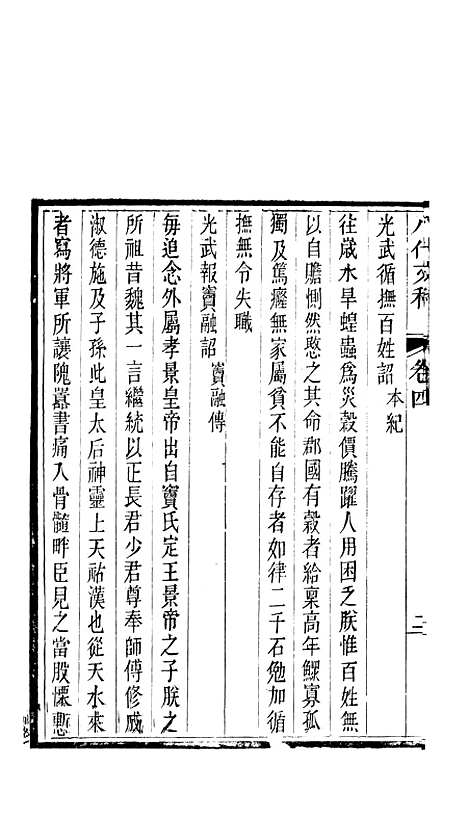 八代文粹 卷四 二
光武循撫百姓詔 本紀
往歲水旱蝗蟲爲災穀價騰躍人用困乏朕惟百姓無
以自贍惻然愍之其命郡國有穀者給稟高年鰥寡孤
獨及篤癃無家屬貧不能自存者如律二千石勉加循
撫無令失職
光武報竇融詔 竇融傳
每追念外屬孝景皇帝出自竇氏定王景帝之子朕之
所祖昔魏其一言繼統以正長君少君尊奉師傅修成
淑德施及子孫此皇太后神靈上天祐漢也從天水來
者寫將軍所讓隗囂書痛入骨髓畔臣見之當股慄慙